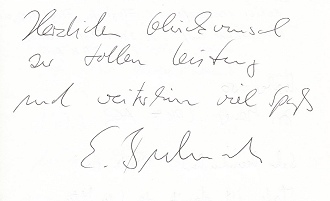 Herzlichen Glückwunsch
zur tollen Leistung
und weiterhin viel Spaß
E.